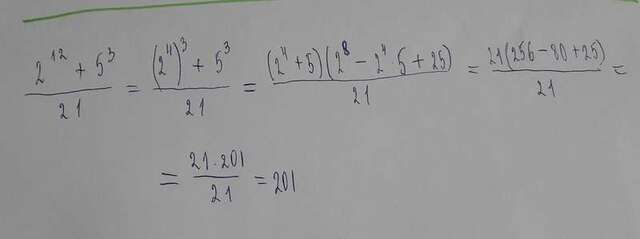 (2^12 + 5^3)/21 = ((2^4)^3 + 5^3)/21 = ((2^4 + 5)(2^8 - 2^4 5 + 25))/21 = (21(256 - 80 + 25))/21 =
= (21 · 201)/21 = 201